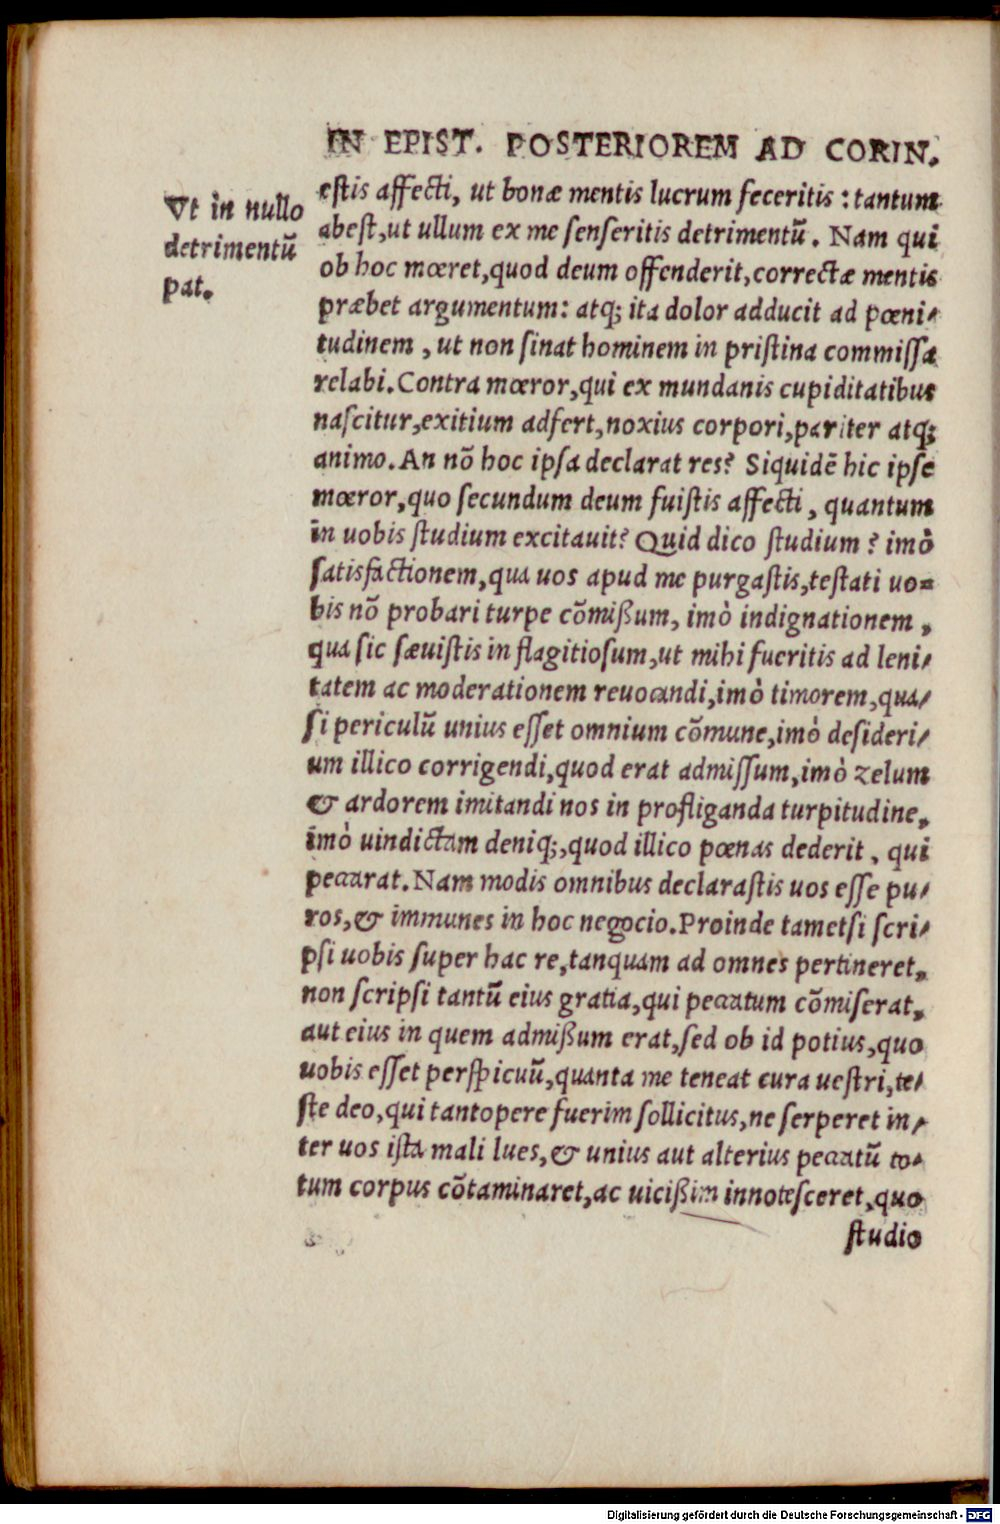 IN EPIST. POSTERIOREM AD CORIN.
Vt in nullo
detrimentū
pat.
estis affecti, ut bonæ mentis lucrum feceritis : tantum
abest, ut ullum ex me senseritis detrimentū. Nam qui
ob hoc mœret, quod deum offenderit, correctæ mentis
præbet argumentum: atq; ita dolor adducit ad pœni-
tudinem, ut non sinat hominem in pristina commissa
relabi. Contra mœror, qui ex mundanis cupiditatibus
nascitur, exitium adfert, noxius corpori, pariter atq;
animo. An nō hoc ipsa declarat res? Siquidē hic ipse
mœror, quo secundum deum fuistis affecti, quantum
in uobis studium excitauit? Quid dico studium ? imò
satisfactionem, qua uos apud me purgastis, testati uo-
bis nō probari turpe cōmißum, imò indignationem,
qua sic sæuistis in flagitiosum, ut mihi fueritis ad leni-
tatem ac moderationem reuocandi, imò timorem, qua-
si periculū unius esset omnium cōmune, imò desideri-
um illico corrigendi, quod erat admissum, imò zelum
& ardorem imitandi nos in profliganda turpitudine,
imò uindictam deniq;, quod illico pœnas dederit, qui
peccarat. Nam modis omnibus declarastis uos esse pu-
ros, & immunes in hoc negocio. Proinde tametsi scri-
psi uobis super hac re, tanquam ad omnes pertineret,
non scripsi tantū eius gratia, qui peccatum cōmiserat,
aut eius in quem admißum erat, sed ob id potius, quo
uobis esset perspicuū, quanta me teneat cura uestri, te-
ste deo, qui tantopere fuerim sollicitus, ne serperet in-
ter uos ista mali lues, & unius aut alterius peccatū to-
tum corpus cōtaminaret, ac uicißim innotesceret, quo
studio
Digitalisierung gefördert durch die Deutsche Forschungsgemeinschaft - DFG